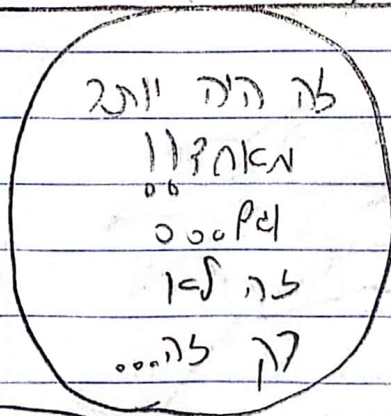 זה היה יותר
מאחד!!
וגם...
זה לא
רק זה...